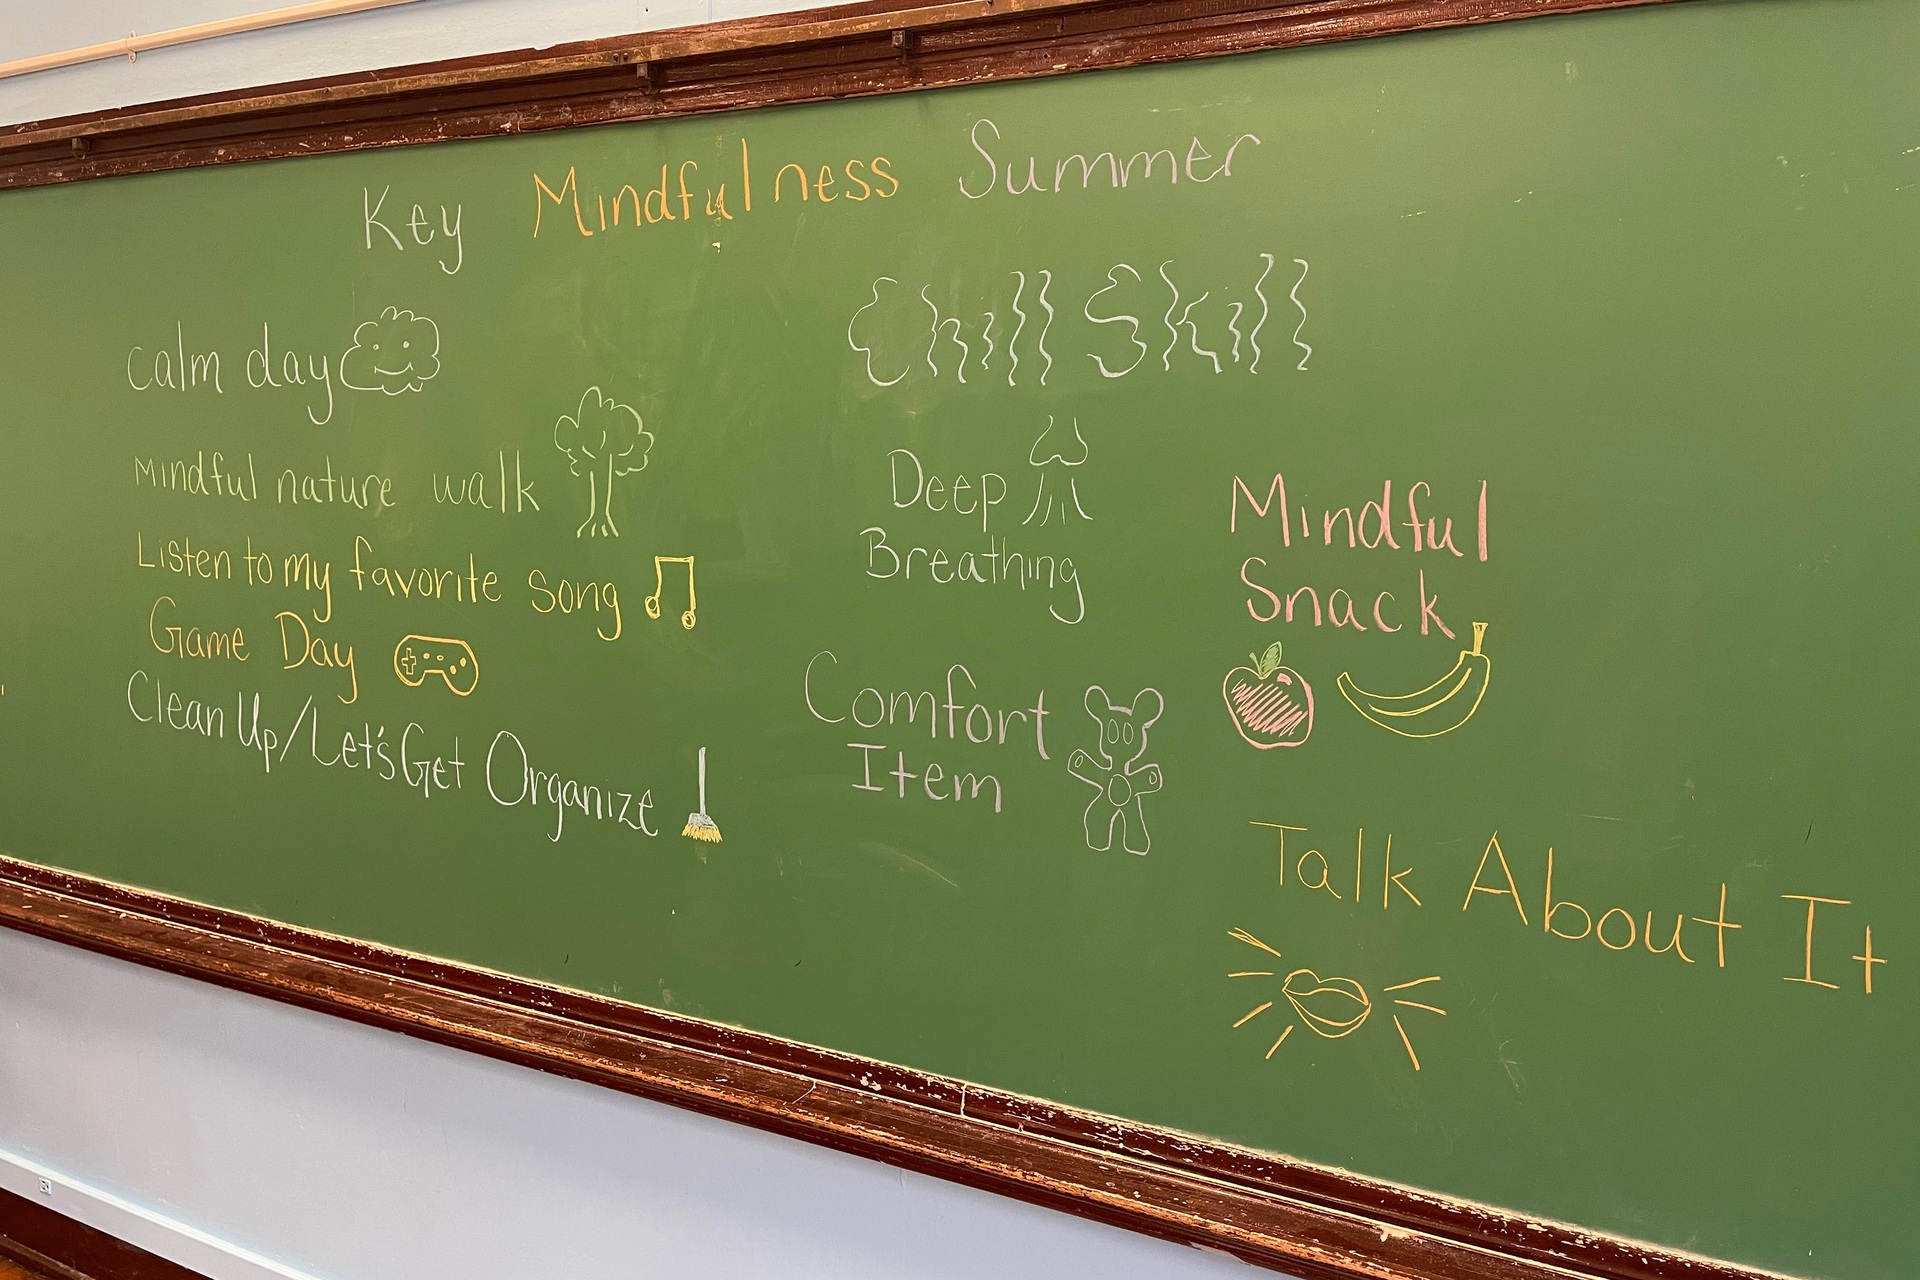 Key Mindfulness Summer
calm day
Mindful nature walk
Listen to my favorite song
Game Day
Clean Up/Let's Get Organize
Chill Skill
Deep
Breathing
Mindful
Snack
Comfort
Item
Talk About It